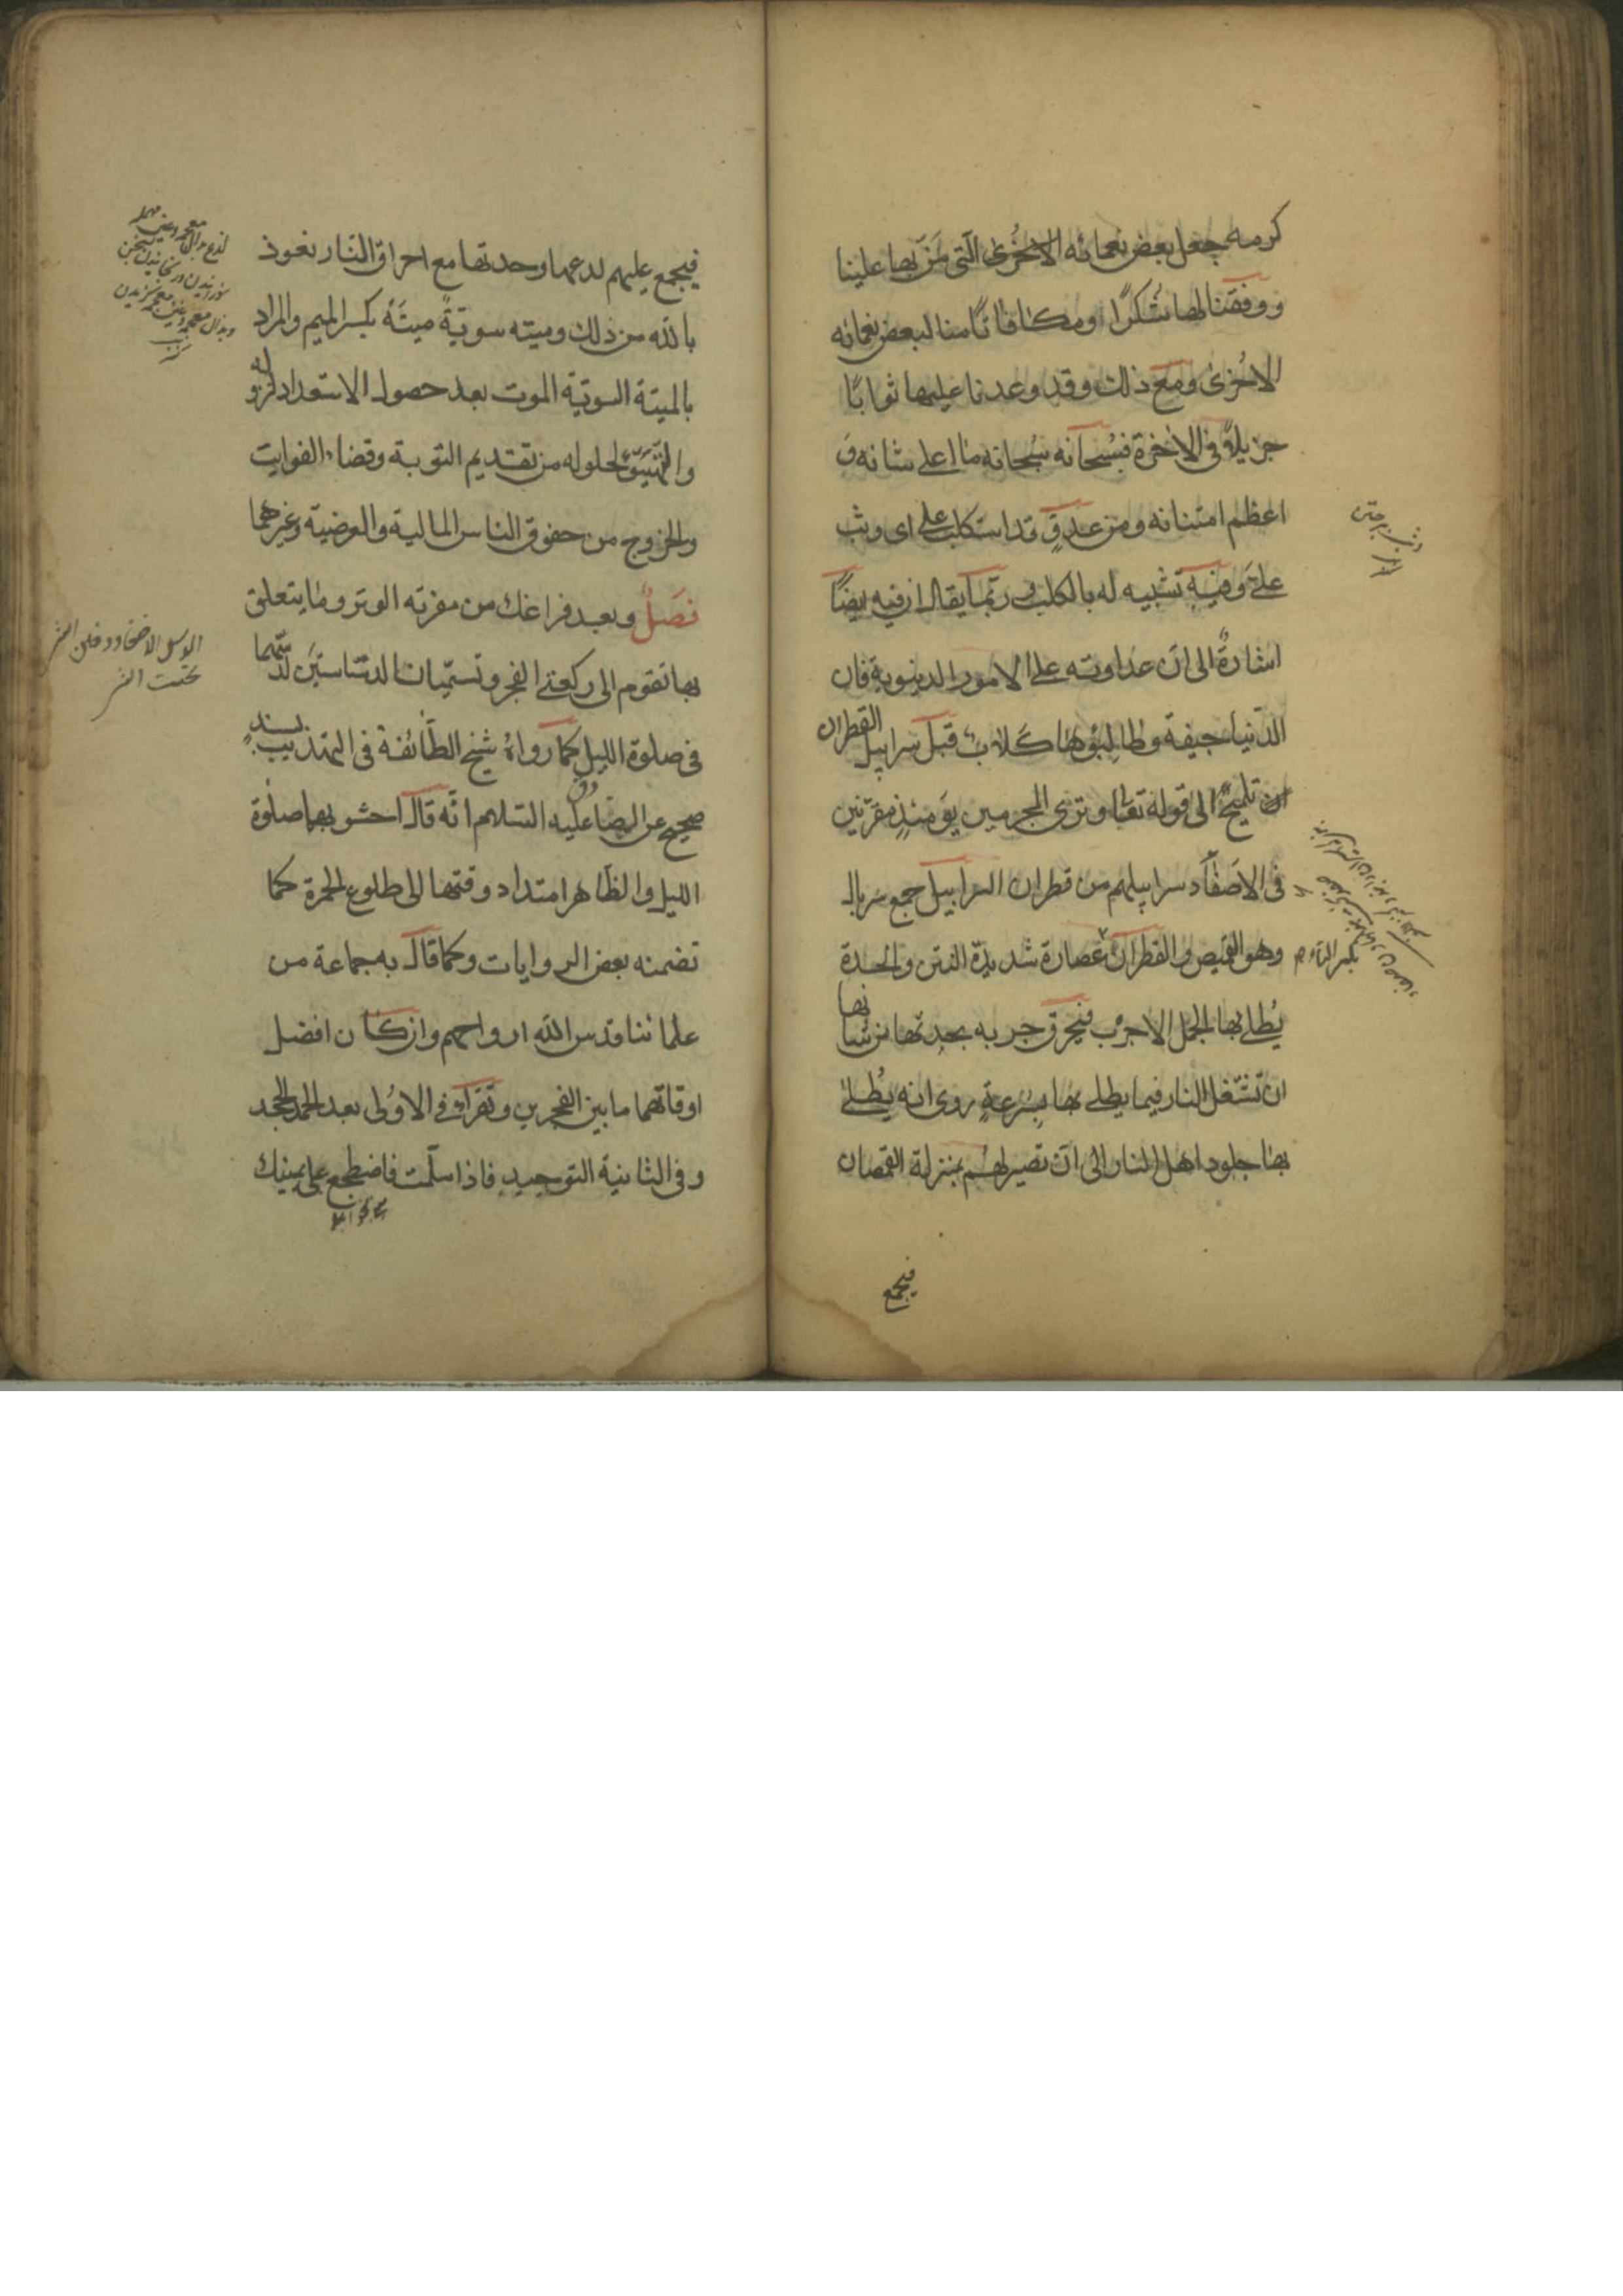 كرمه جعل بعض نعمائه الاخُرىٰ الّتى مَنّ بها علينا
ووفقنا لها شُكرًا ومكافاتًا منا لبعض نعمائه
الاخُرىٰ ومع ذلك وقد وعدنا عليها ثوابًا
جزيلاً فى الاخرة فسُبحانه سُبحانه ما اعلى شانه وَ
اعظم امتنانه ومن عدوٍّ قد استكلب على اى وثب
علىّ وفيه تشبيه له بالكلب وربّما يقال ان فيه ايضًا
اشارةً الى انّ عداوته على الامور الدينوية فان
الدّنيا جيفة وطالبُوها كلابٌ قبل سرابيل القطران
تلميحٌ الى قوله تعالى وترى المجرمين يَومئذٍ مقرّنين
فى الاَصفاد سرابيلهم من قطران السرابيل جمع سربال
وهو القميص والقطران عُصارة شديدة النتن والحدة
يُطلى بها الجمل الاجرب فيحرق جربه بحدتها من شانها
ان تشتغل النار فيما يطلى بها بسُرعةٍ روى انه يُطلىٰ
بها جلود اهل النار الى ان تصير لهم بمنزلة القمصان
بكسر الراء
فيجمع
فيجمع عليهم لدعها وحدتها مع احراق النّار نعوذ
بالله من ذلك وميته سويّةً ميتَةً بكسر الميم والمراد
بالميتة السويّة الموت بعد حصول الاستعداد لنزوله
والتهيّؤ لحلوله من تقديم التوبة وقضاء الفوايت
والخروج من حقوق الناس المالية والعرضية وغيرهما
فَصلٌ وبعد فراغك من مفردة الوتر وما يتعلق
بها تقوم الى ركعتى الفجر وتسمّيان الدسّاستين لدسّهما
فى صلوة الليل كما رواهُ شيخ الطّائفة فى التهذيب بسندٍ
صحيح عن الرضا عليه السّلام انّه قال احشو بهما صلوٰة
الليل والظّاهر امتداد وقتهما الى طلوع الحمرة كما
تضمنه بعض الروايات وكما قال به جماعة من
علمائنا قدس الله ارواحهم وان كان افضل
اوقاتهما ما بين الفجرين وتقراء فى الاوُلى بعد الحمد الجحد
وفى الثانية التوحيد فاذا سلّمت فاضطجع على يمينك